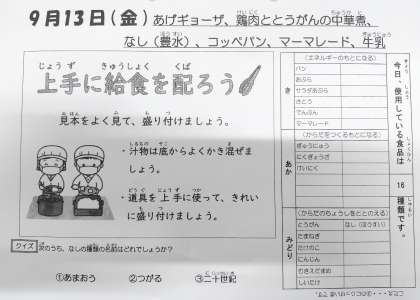 9月13日(金) あげギョーザ、鶏肉ととうがんの中華煮、
なし(豊水)、コッペパン、マーマレード、牛乳
上手に給食を配ろう
見本をよく見て、盛り付けましょう。
・汁物は底からよくかき混ぜま
しょう。
・道具を上手に使って、きれい
に盛り付けましょう。
クイズ 次のうち、なしの種類の名前はどれでしょうか?
①あまおう ②つがる ③二十世紀
今日、使用している食品は 16 種類です。
き
(エネルギーのもとになる)
パン
あぶら
サラダあぶら
さとう
でんぷん
マーマレード
あか
(からだをつくるもとになる)
ぎゅうにゅう
にくぎょうざ
けいにく
みどり
(からだのちょうしをととのえる)
とうがん なし(ほうすい)
たまねぎ
たけのこ
にんじん
むきえだまめ
しいたけ